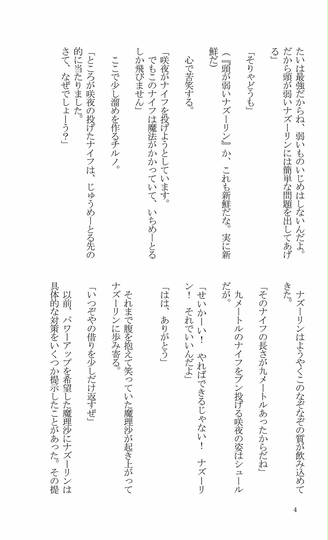 たいは最強だからね、弱いものいじめはしないんだよ。
だから頭が弱いナズーリンには簡単な問題を出してあげ
る」
「そりゃどうも」
（『頭が弱いナズーリン』か、これも新鮮だな。実に新
鮮だ）
心で苦笑する。
「咲夜がナイフを投げようとしています。
でもこのナイフは魔法がかかっていて、いちめーとる
しか飛びません」
ここで少し溜めを作るチルノ。
「ところが咲夜の投げたナイフは、じゅうめーとる先の
的に当たりました。
さて、なぜでしょーう？」
ナズーリンはようやくこのなぞなぞの質が飲み込めて
きた。
「そのナイフの長さが九メートルあったからだね」
九メートルのナイフをブン投げる咲夜の姿はシュール
だが。
「せいかーい！　やればできるじゃない！　ナズーリ
ン！　それでいいんだよ」
「はは、ありがとう」
それまで腹を抱えて笑っていた魔理沙が起き上がって
ナズーリンに歩み寄る。
「いつぞやの借りを少しだけ返すぜ」
以前、パワーアップを希望した魔理沙にナズーリンは
具体的な対策をいくつか提示したことがあった。その提
4